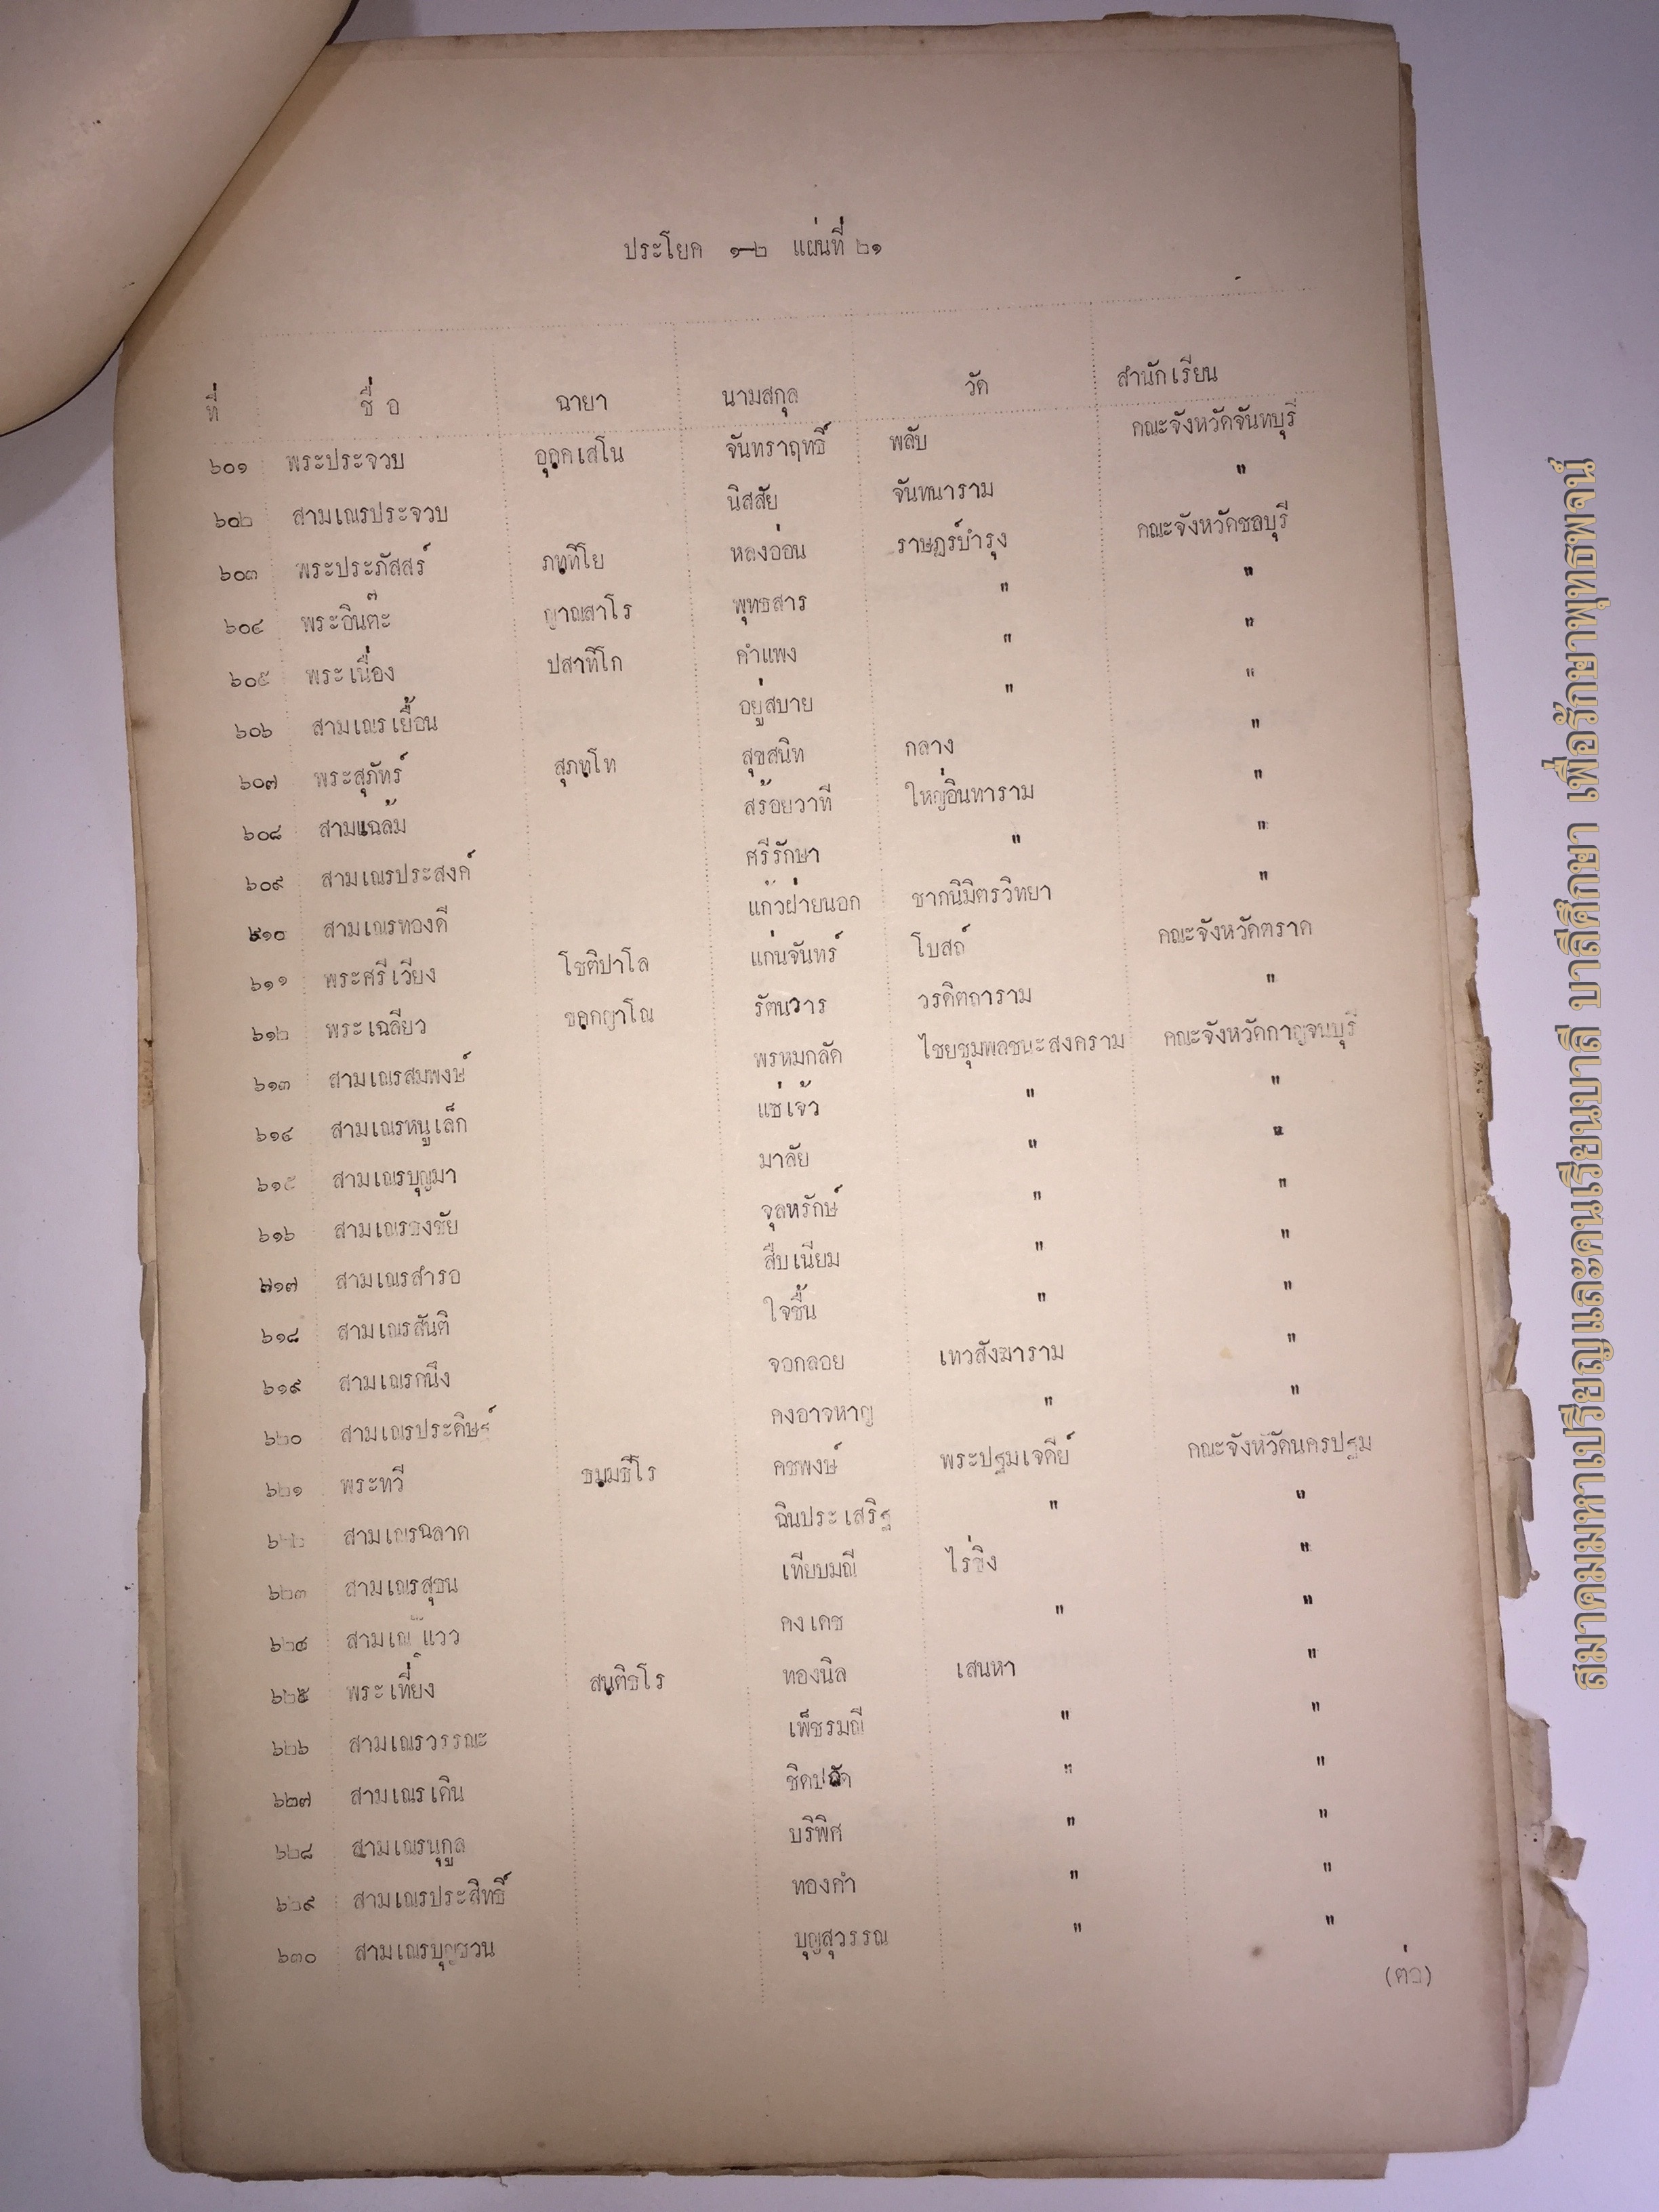 ประโยค ๑-๒ แผ่นที่ ๒๑
ที่ ชื่อ ฉายา นามสกุล วัด สำนักเรียน
๖๐๑ พระประจวบ อุตฺตเสโน จันทราฤทธิ์ พลับ คณะจังหวัดจันทบุรี
๖๐๒ สามเณรประจวบ นิสสัย จันทนาราม "
๖๐๓ พระประภัสสร์ ภทฺทิโย หลงอ่อน ราษฎร์บำรุง คณะจังหวัดชลบุรี
๖๐๔ พระอินต๊ะ ญาณสาโร พุทธสาร " "
๖๐๕ พระเนื่อง ปสาทิโก คำแพง " "
๖๐๖ สามเณรเยื้อน อยู่สบาย " "
๖๐๗ พระสุภัทร์ สุภทฺโท สุขสนิท กลาง "
๖๐๘ สามแฉล้ม สร้อยวาที ใหญ่อินทาราม "
๖๐๙ สามเณรประสงค์ ศรีรักษา " "
๖๑๐ สามเณรทองดี แก้วฝ่ายนอก ชากนิมิตรวิทยา "
๖๑๑ พระศรีเวียง โชติปาโล แก่นจันทร์ โบสถ์ คณะจังหวัดตราด
๖๑๒ พระเฉลียว รัตนวาร วรดิตถาราม "
๖๑๓ สามเณรสมพงษ์ พรหมกลัด ไชยชุมพลชนะสงคราม คณะจังหวัดกาญจนบุรี
๖๑๔ สามเณรหนูเล็ก แซ่เจ้ว " "
๖๑๕ สามเณรบุญมา มาลัย " "
๖๑๖ สามเณรธงชัย จุลหรักษ์ " "
๖๑๗ สามเณรสำรอ สืบเนียม " "
๖๑๘ สามเณรสันติ ใจชื้น " "
๖๑๙ สามเณรกนึง จอกลอย เทวสังฆาราม "
๖๒๐ สามเณรประดิษฐ์ คงอาจหาญ " "
๖๒๑ พระทวี ธมฺมธีโร คชพงษ์ พระปฐมเจดีย์ คณะจังหวัดนครปฐม
๖๒๒ สามเณรฉลาด ฉินประเสริฐ " "
๖๒๓ สามเณรสุธน เทียบมณี ไร่ขิง "
๖๒๔ คงเดช " "
๖๒๕ พระเที่ยง สนฺติธโร ทองนิล เสนหา "
๖๒๖ สามเณรวรรณะ เพ็ชรมณี " "
๖๒๗ สามเณรเดิน " "
๖๒๘ สามเณรนุกูล บริพิศ " "
๖๒๙ สามเณรประสิทธิ์ ทองคำ " "
๖๓๐ สามเณรบุญชวน บุญสุวรรณ " "
(ต่อ)
สมาคมมหาเปรียญและคนเรียนบาลี บาลีศึกษา เพื่อรักษาพุทธพจน์